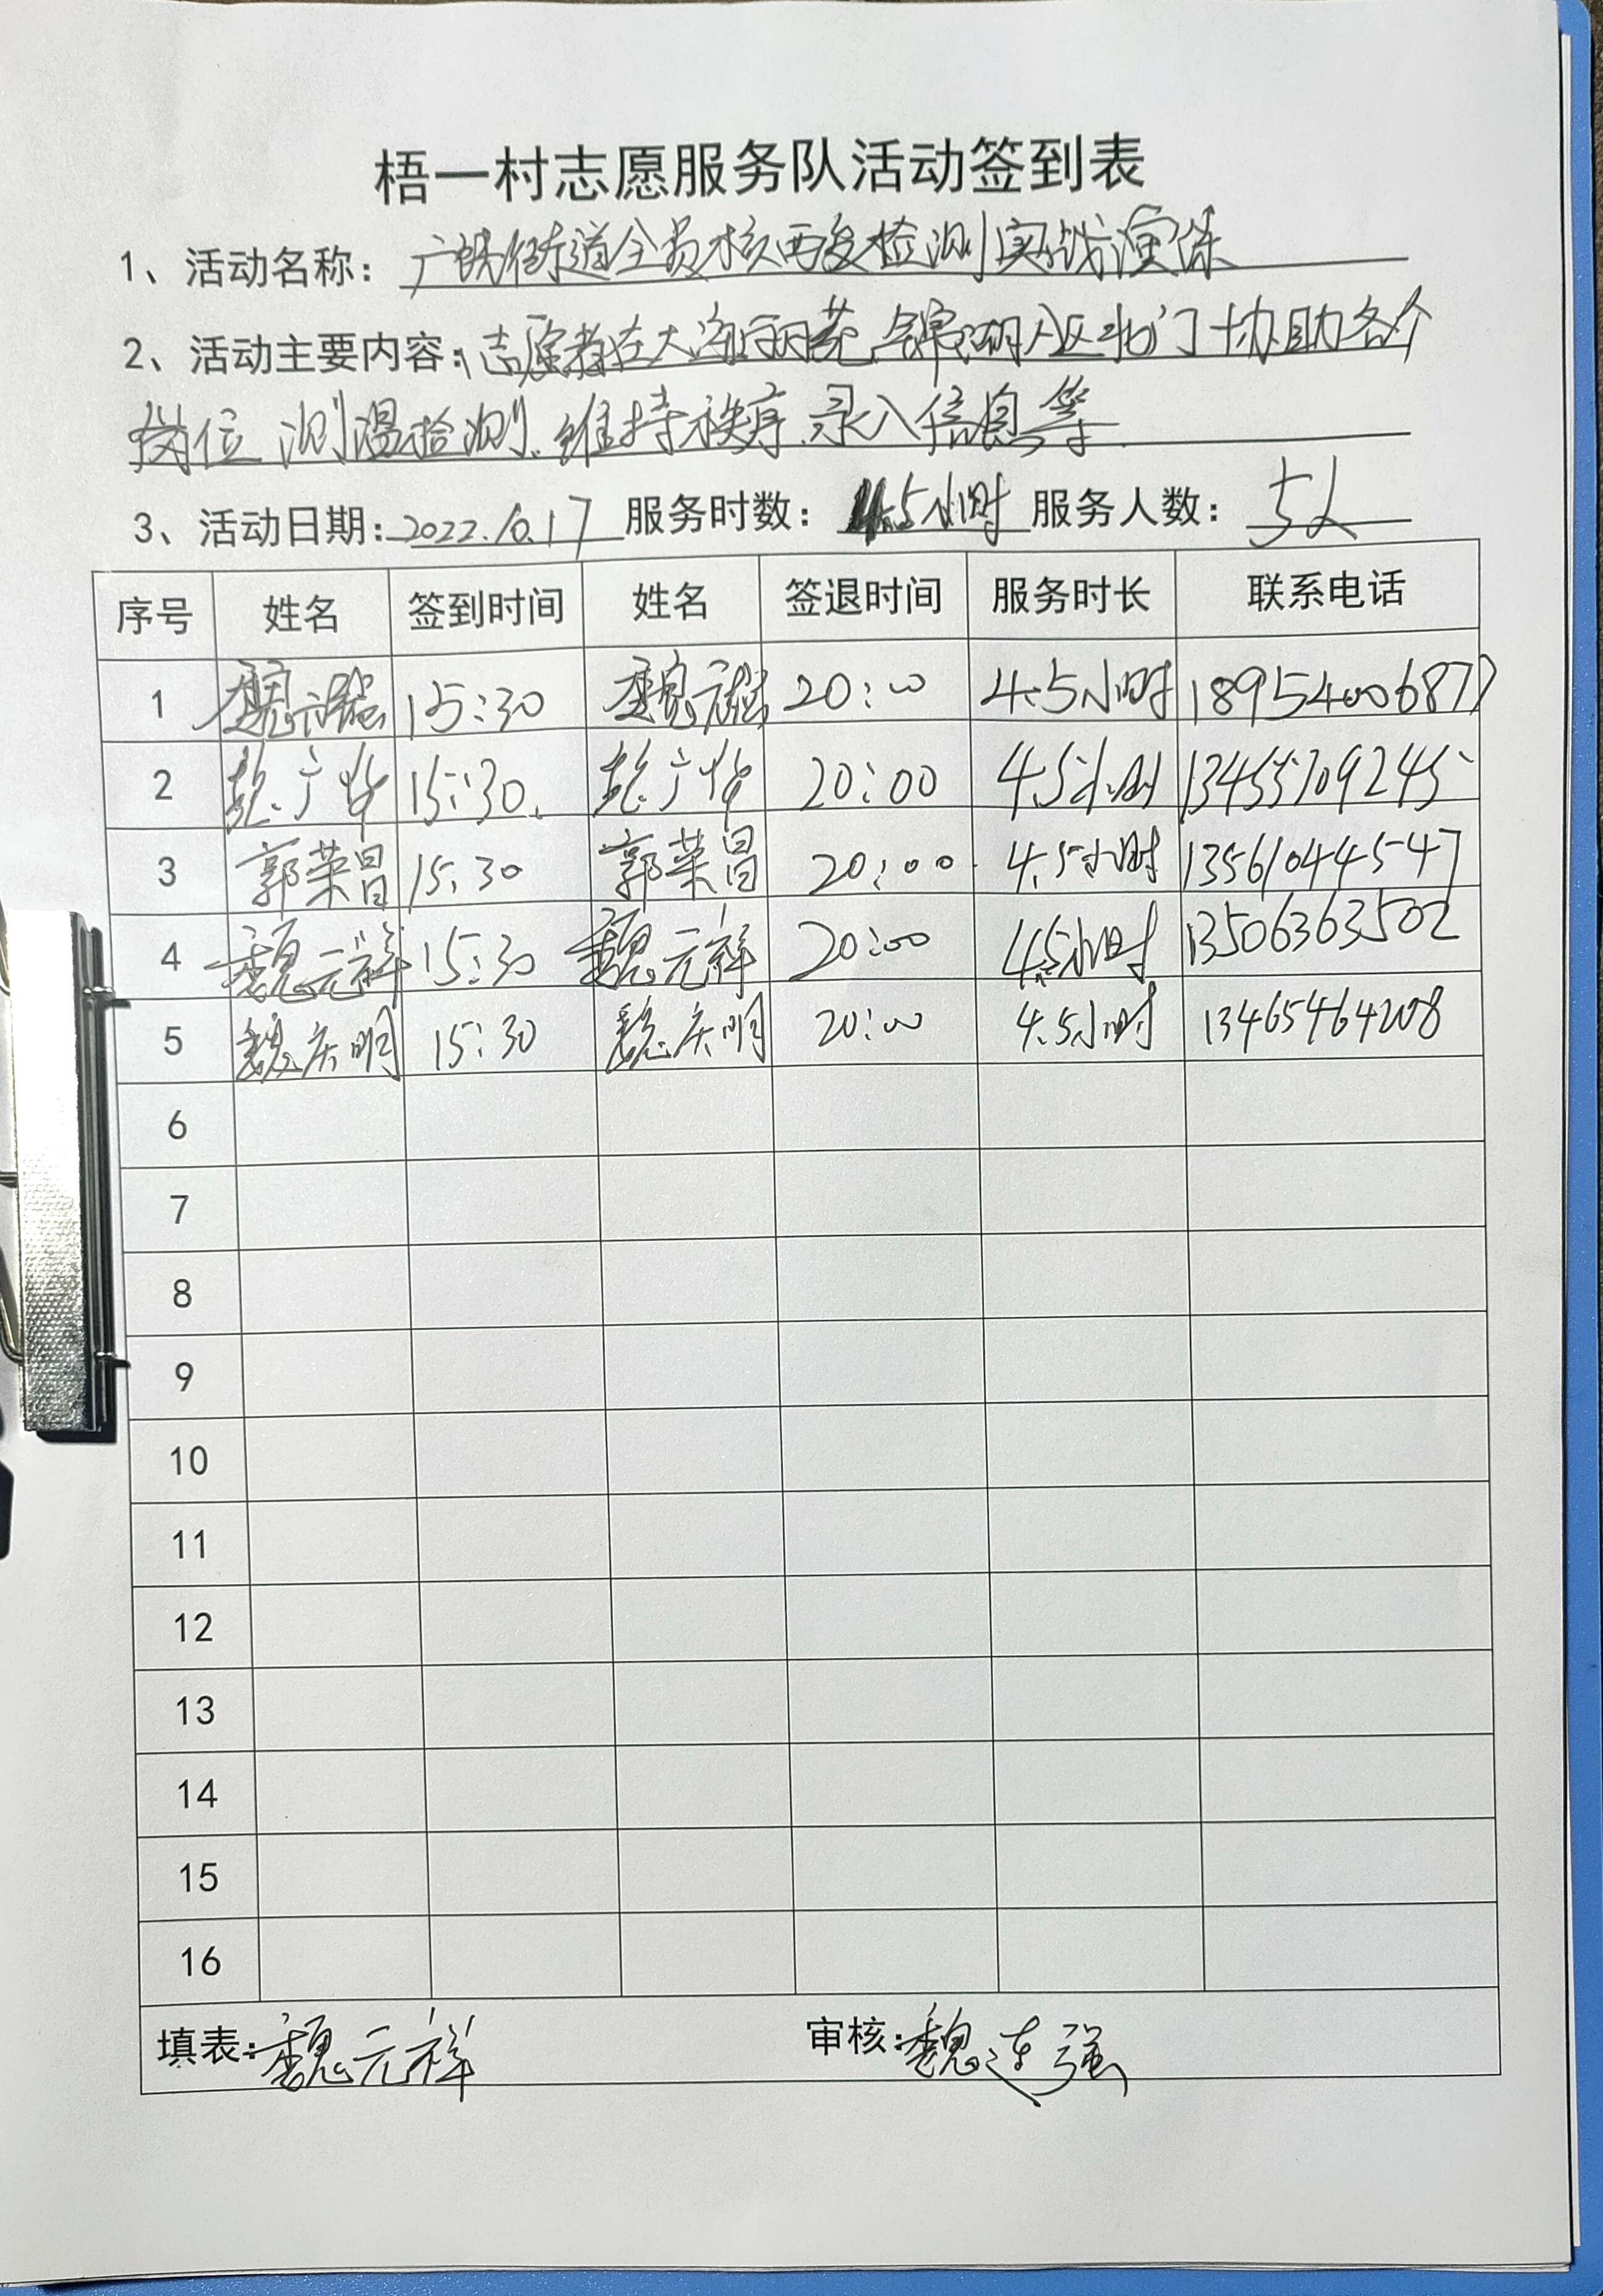 梧一村志愿服务队活动签到表
1、活动名称：广饶街道全员核酸检测实战演练
2、活动主要内容：志愿者在大海丽苑、锦湖小区北门协助各个
岗位 测温检测、维持秩序、录入信息等
3、活动日期：2022.10.17 服务时数：4.5小时 服务人数：5人
序号 姓名 签到时间 姓名 签退时间 服务时长 联系电话
1 15:30 20:00 4.5小时 18954006877
2 彭广华 15:30 彭广华 20:00 4.5小时 13455709245
3 郭荣昌 15:30 郭荣昌 20:00 4.5小时 13561044547
4 魏元祥 15:30 魏元祥 20:00 4.5小时 13506363502
5 魏庆明 15:30 魏庆明 20:00 4.5小时 13465464208
6
7
8
9
10
11
12
13
14
15
16
填表：魏元祥 审核：魏连强